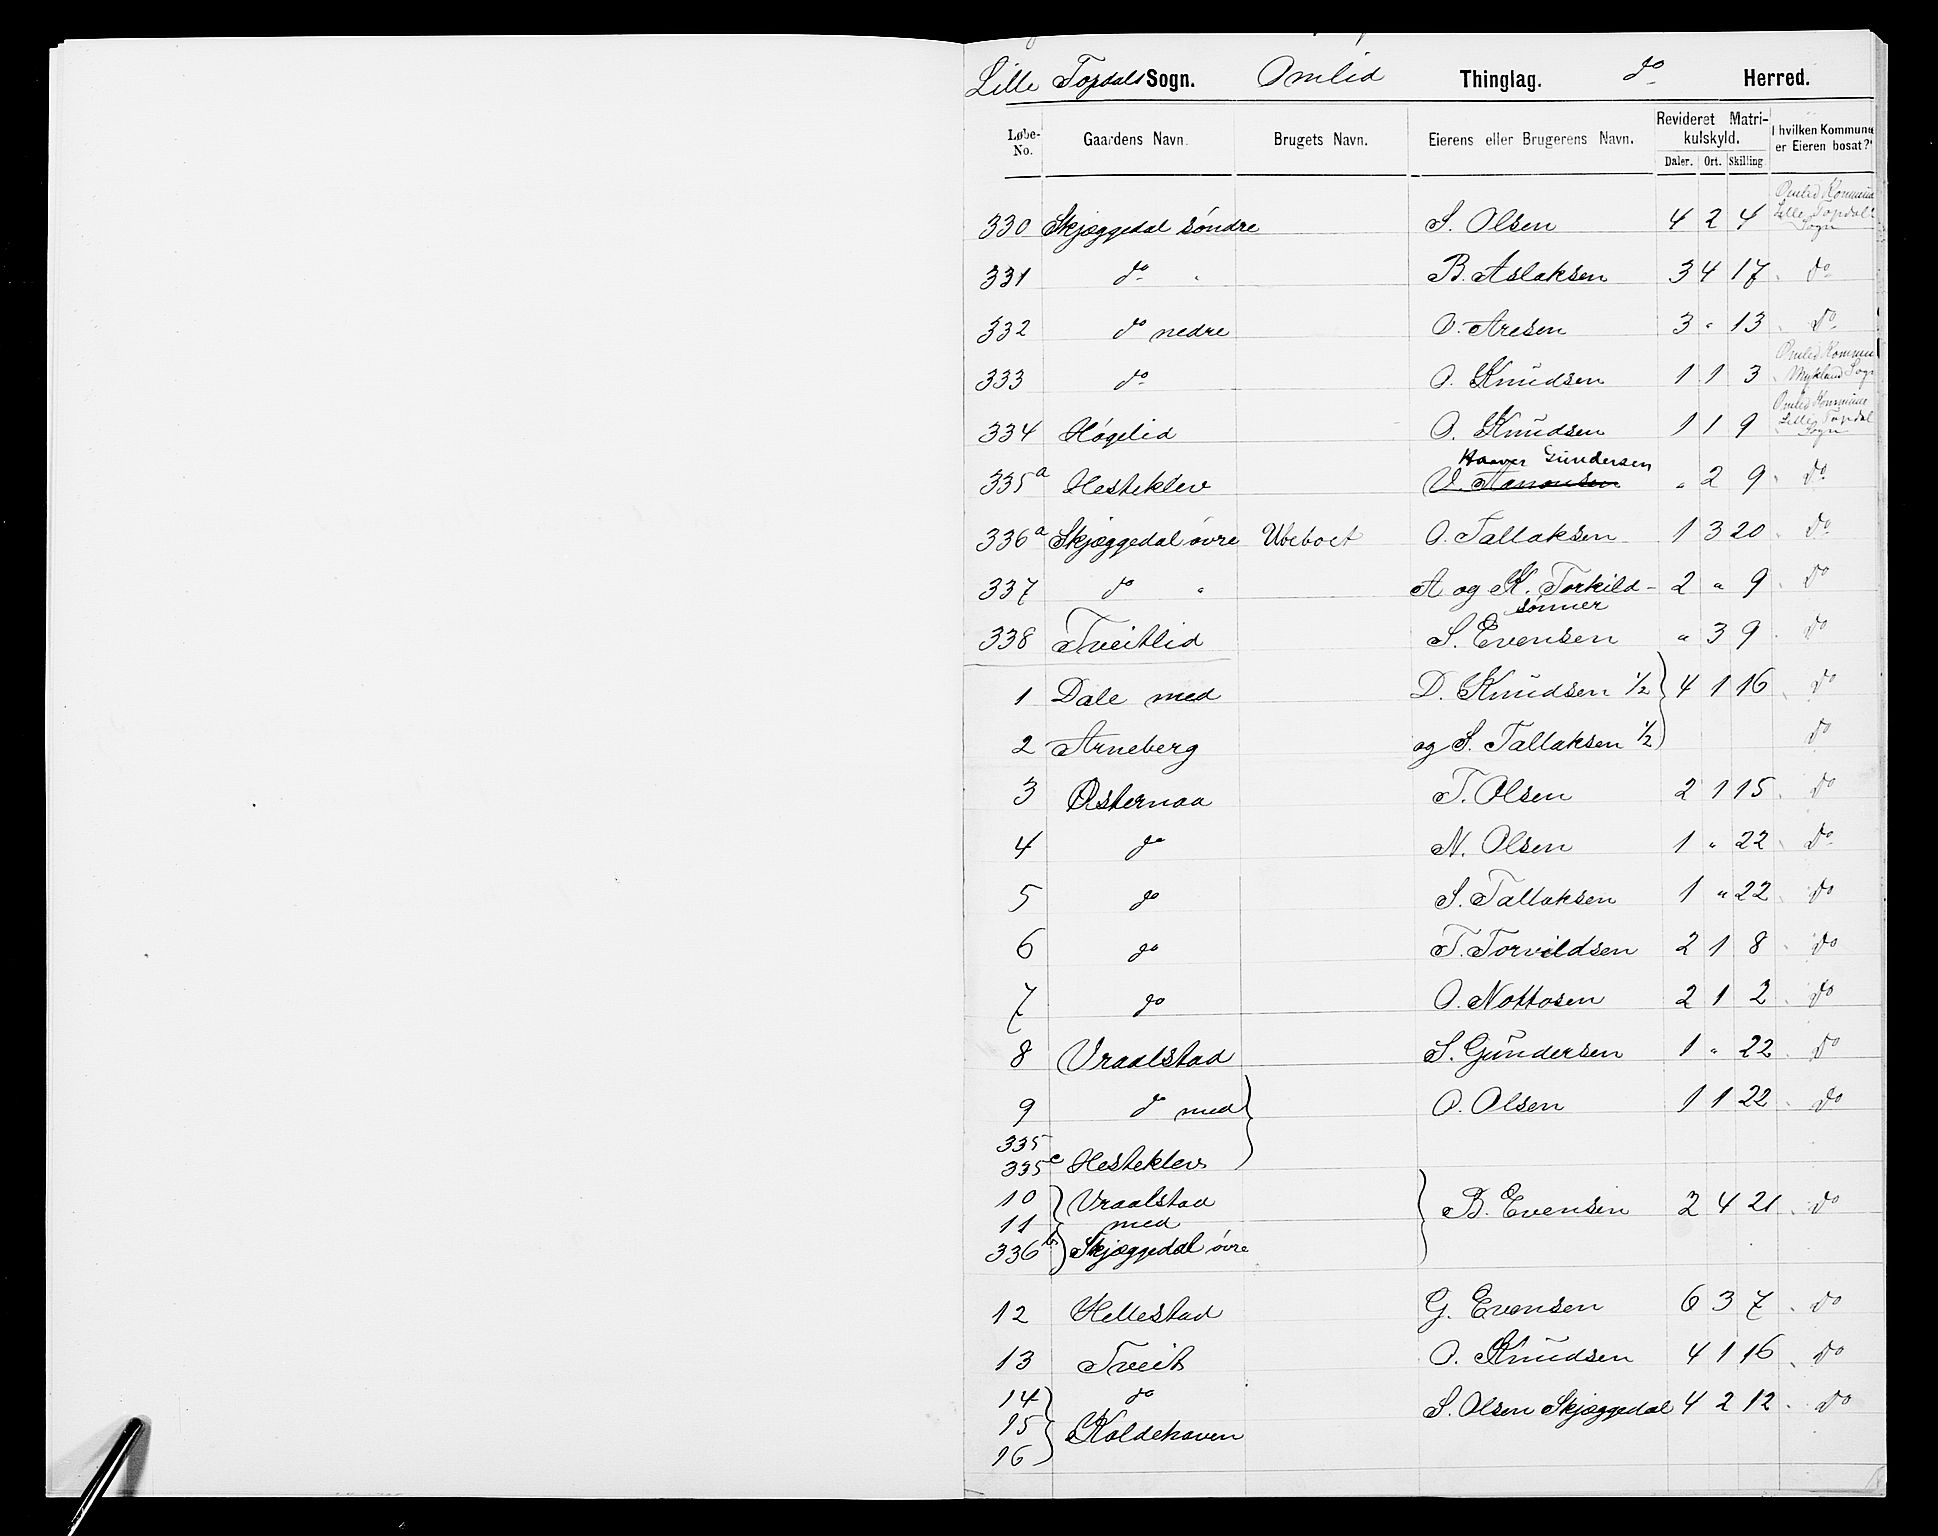 Lille Topdals Sogn. Omlid Thinglag. do Herred.
Løbe-No. Gaardens Navn. Brugets Navn. Eierens eller Brugerens Navn. Revideret Matrikulskyld. Daler. Ort. Skilling I hvilken Kommune er Eieren bosat?
330 Skjæggedal søndre S. Olsen 4 2 4 Omlid Kommune Lille Topdals Sogn
331 do " B. Aslaksen 3 4 17 do
332 do nedre O. Aresen 3 " 13 do
333 do O. Knudsen 1 1 3 Omlid Kommune Mykland Sogn
334 Høgelid O. Knudsen 1 1 9 Omlid Kommune Lille Topdal Sogn
Haaver Gundersen
335a Hesteklev " 2 9 do
336a Skjæggedal øvre Ubeboet O. Tallaksen 1 3 20 do
337 do " A og K. Torkild- 2 " 9 do
sønner
338 Tveitlid S. Evensen " 3 9 do
1 Dale med D. Knudsen 1/2 4 1 16 do
2 Arneberg og S. Tallaksen 1/2 do
3 Østernaa T. Olsen 2 1 15 do
4 do N. Olsen 1 " 22 do
5 do S. Tallaksen 1 " 22 do
6 do T. Torvildsen 2 1 8 do
7 do O. Nottosen 2 1 2 do
8 Vraalstad S. Gundersen 1 " 22 do
9 do med O. Olsen 1 1 22 do
335
335c Hesteklev
10 Vraalstad B. Evensen 2 4 21 do
11 med
336b Skjæggedal øvre
12 Hellestad G. Evensen 6 3 7 do
13 Tveit O. Knudsen 4 1 16 do
14 do S. Olsen Skjæggedal 4 2 12 do
15 Koldehaven
16